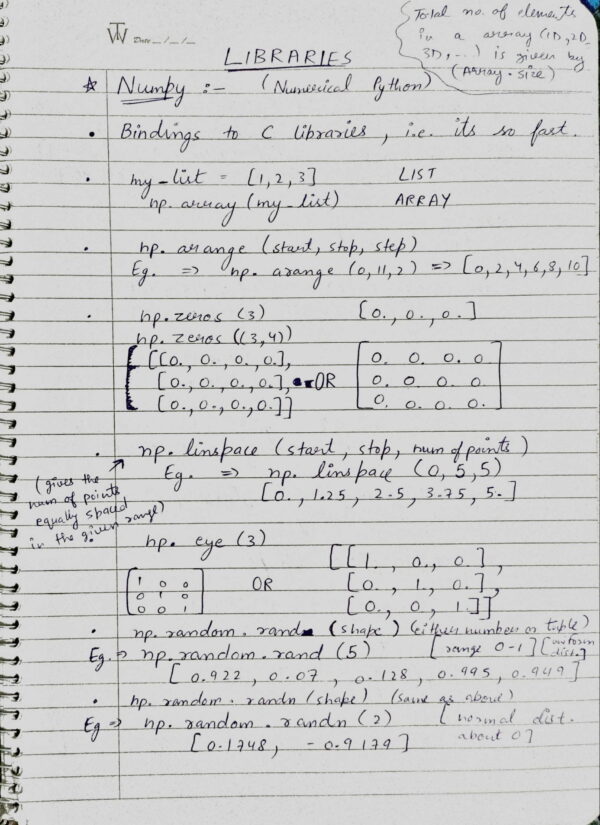 Total no. of elements
in a array (1D, 2D,
3D, ...) is given by
(Array.size)
Date __/__/__
LIBRARIES
* Numpy :- (Numerical Python)
• Bindings to C libraries, i.e. its so fast.
• my_list = [1,2,3] LIST
np.array(my_list) ARRAY
• np.arange(start, stop, step)
Eg. => np.arange(0,11,2) => [0,2,4,6,8,10]
• np.zeros(3) [0., 0., 0.]
np.zeros((3,4))
[[0., 0., 0., 0.], 0. 0. 0. 0.
[0., 0., 0., 0.], OR 0. 0. 0. 0.
[0., 0., 0., 0.]] 0. 0. 0. 0.
• np.linspace(start, stop, num of points)
Eg. => np.linspace(0,5,5)
[0., 1.25, 2.5, 3.75, 5.]
(gives the
num of points
equally spaced
in the given range)
np.eye(3)
1 0 0 [[1., 0., 0.],
0 1 0 OR [0., 1., 0.],
0 0 1 [0., 0., 1.]]
• np.random.rand (shape) (either number or tuple)
Eg. => np.random.rand(5) [range 0-1] [uniform
dist.]
[0.922, 0.07, 0.128, 0.995, 0.949]
• np.random.randn(shape) (same as above)
Eg => np.random.randn(2) [normal dist.
about 0]
[0.1748, -0.9179]